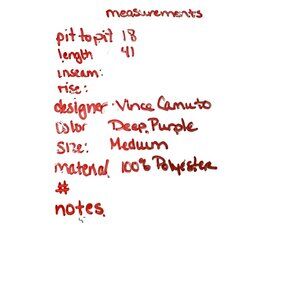 measurements
pit to pit 18
length 41
inseam:
rise:
designer Vince Camuto
color Deep Purple
Size: Medium
material 100% Polyester
#
notes